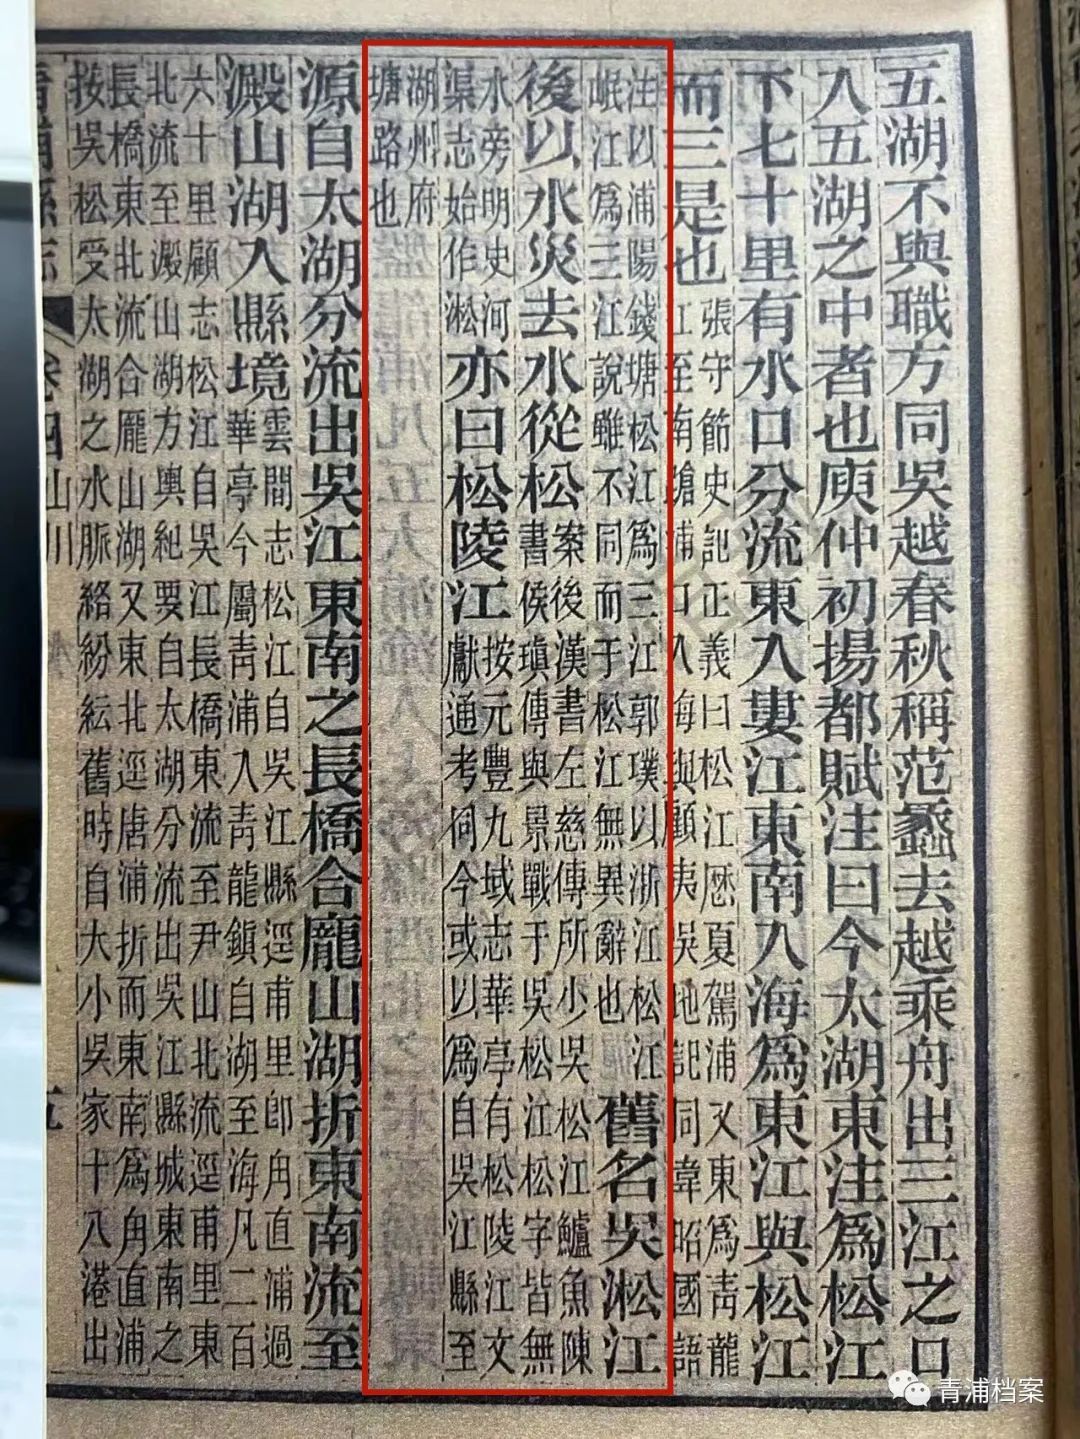 五湖不與職方同吳越春秋稱范蠡去越乘舟出三江之口
入五湖之中者也庾仲初揚都賦注曰今太湖東注為松江
下七十里有水口分流東入婁江東南入海為東江與松江
而三是也
張守節史記正義曰松江歷夏駕浦又東為青龍
江至南蹌浦口入海與顧夷吳地記同韋昭國語
注以浦陽錢塘松江為三江郭璞以浙江松江
岷江為三江說雖不同而于松江無異辭也
舊名吳淞江
後以水災去水從松
案後漢書左慈傳所少吳松江鱸魚陳
書侯瑱傳與景戰于吳松江松字皆無
水旁明史河
渠志始作淞
亦曰松陵江
按元豐九域志華亭有松陵江文
獻通考同今或以為自吳江縣至
湖州府
塘路也
源自太湖分流出吳江東南之長橋合龐山湖折東南流至
澱山湖入縣境
雲間志松江自吳江縣逕甫里郎甪直浦過
華亭今屬青浦入青龍鎮自湖至海凡二百
六十里顧志松江自吳江長橋東流至尹山北流逕甫里東
北流至澱山湖方輿紀要自太湖分流出吳江縣城東南之
長橋東北流合龐山湖又東北逕唐浦折而東南為甪直浦
按吳松受太湖之水脈絡紛紜舊時自大小吳家十八港出
青浦縣志 卷四 山川 五
青浦档案